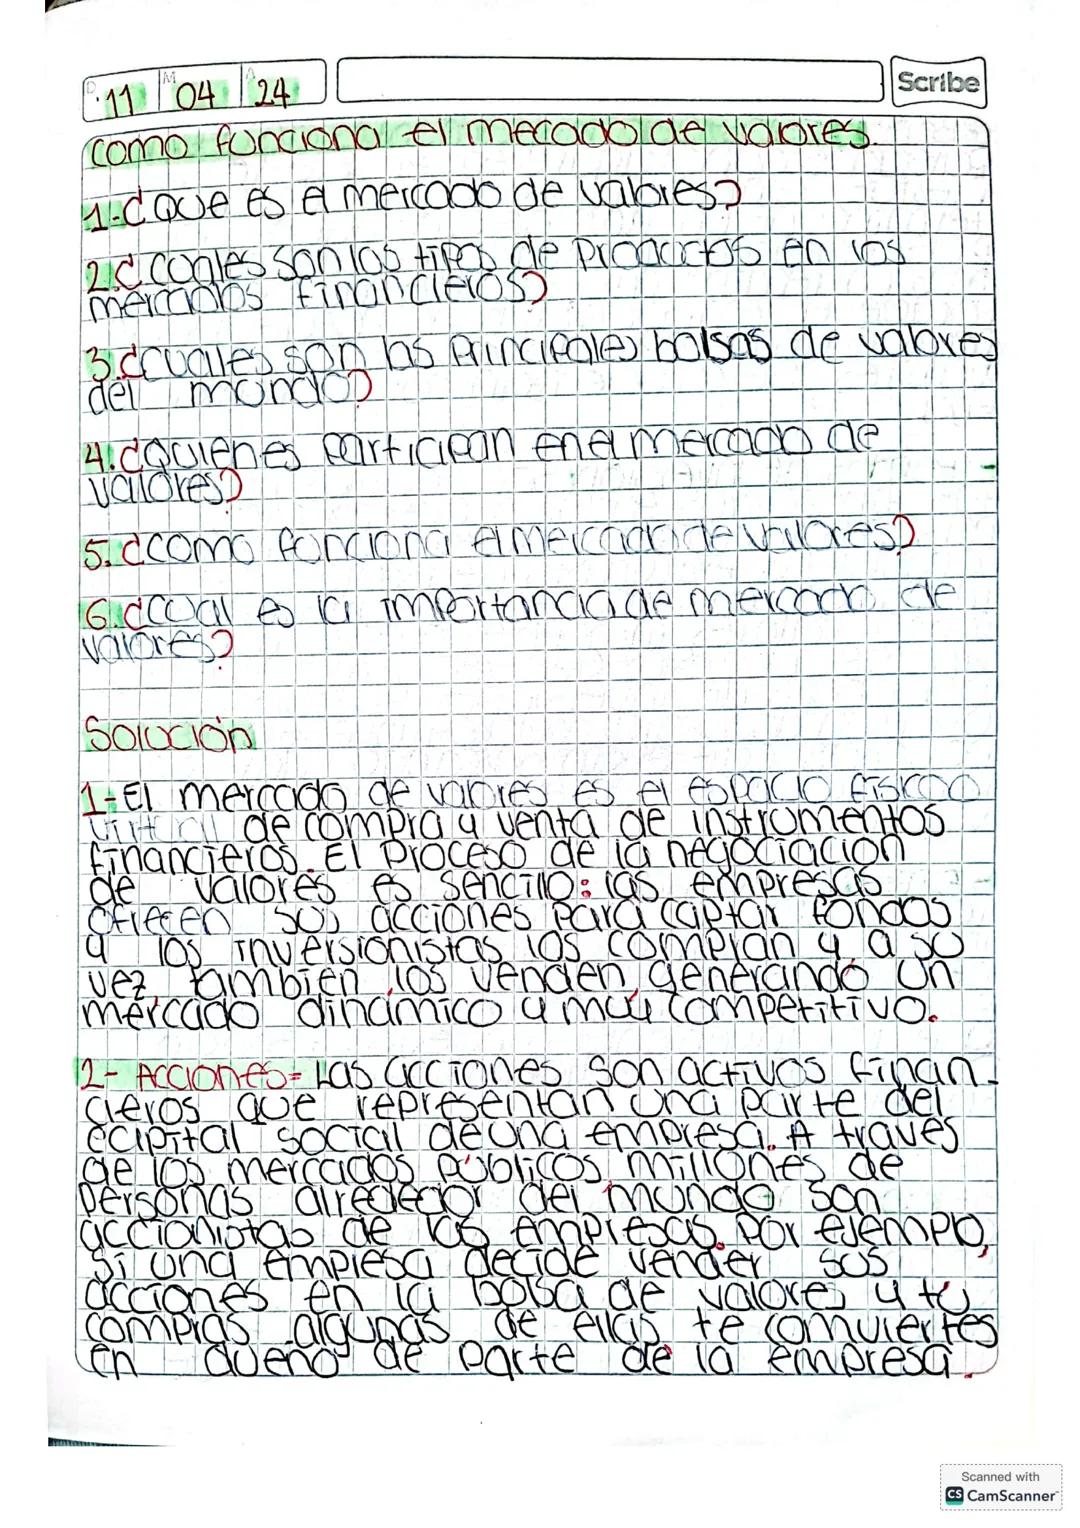 D 11 M 04 A 24 Scribe
como funciona el mecado de valores.
1.¿que es el mercado de valores?
2.¿ cuales son los tipos de productos en los
mercados financieros?
3.¿cuales son las principales bolsas de valores
del mundo?
4.¿quienes participan en el mercado de
valores?
5.¿como funciona el mercado de valores?
6.¿cual es la importancia de mercado de
valores?
Solución
1-El mercado de valores es el espacio fisico o
virtual de compra y venta de instrumentos
financieros. El proceso de la negociacion
de valores es sencillo: las empresas
ofrecen sus acciones para captar fondos
y los inversionistas los compran y a su
vez también los venden, generando un
mercado dinámico y muy competitivo.
2- Acciones= Las acciones son activos finan-
cieros que representan una parte del
capital social de una empresa. A traves
de los mercados públicos millones de
personas alrededor del mundo son
accionistas de las empresas. Por ejemplo,
si una empresa decide vender sus
acciones en la bolsa de valores y tú
compras algunas de ellas te comviertes
en dueño de parte de la empresa.
Scanned with
CS CamScanner